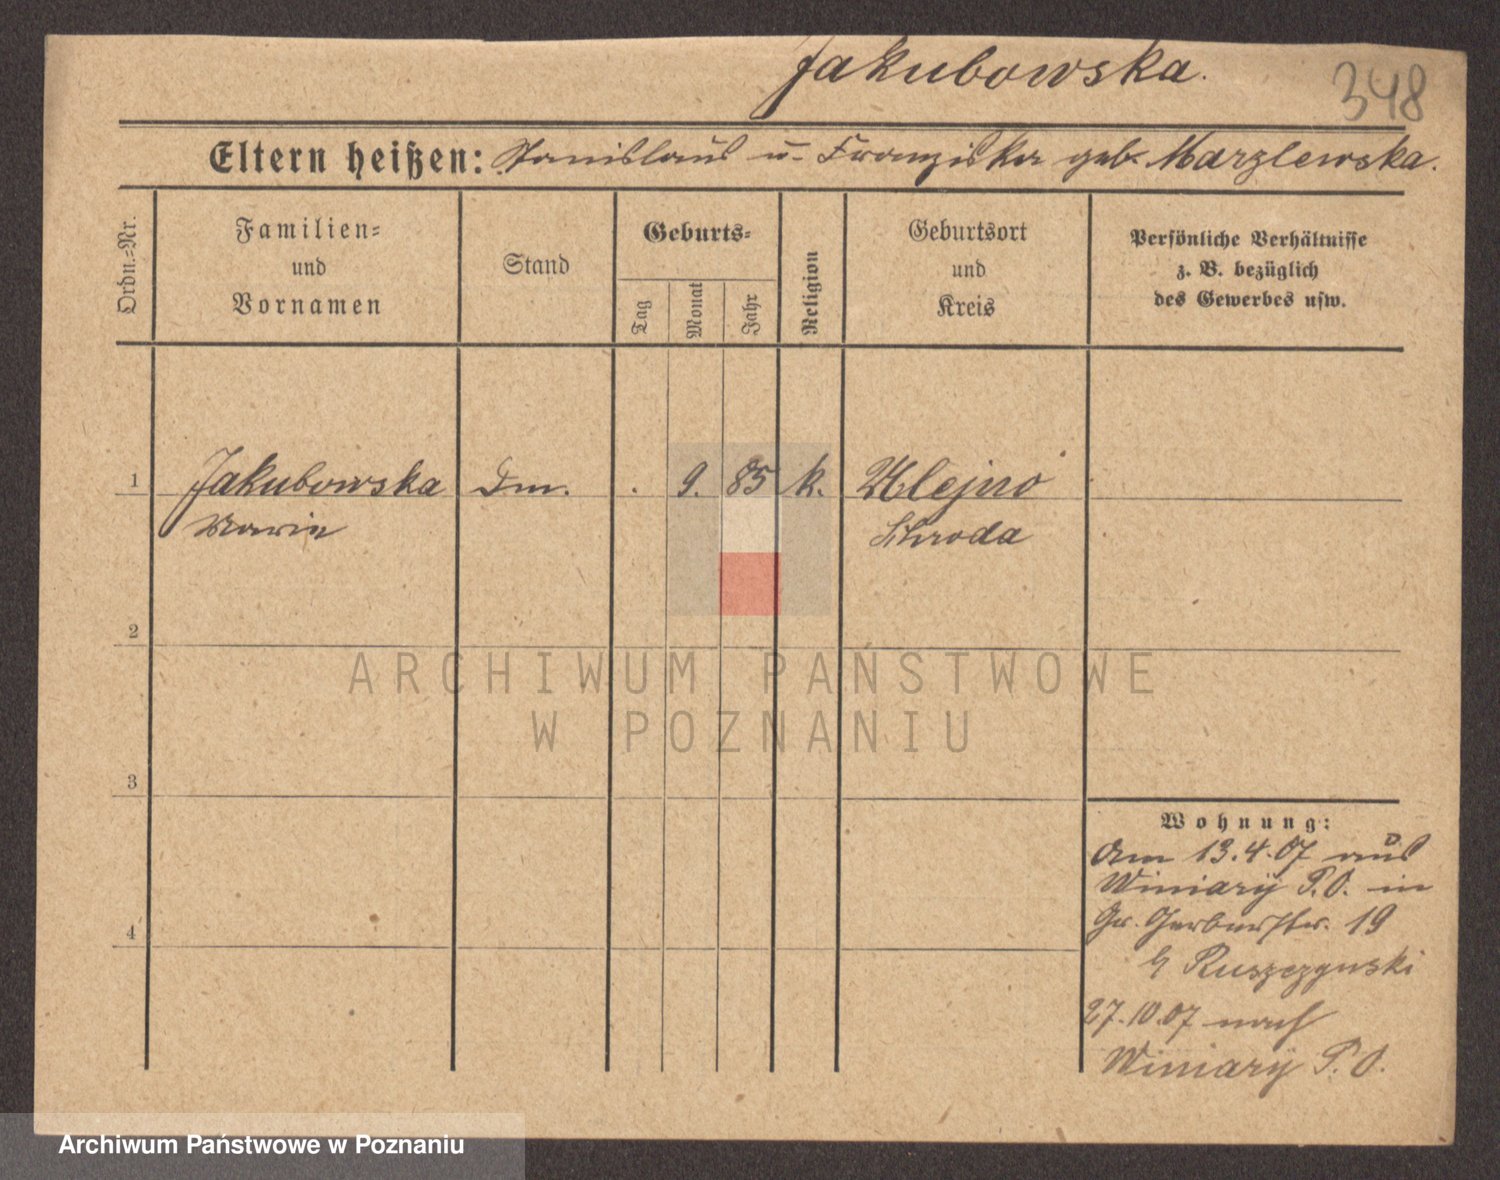 Jakubowska.
348
Eltern heißen: Stanislaus u. Franziska geb. Marzlewska.
Ordn.-Nr.
Familien-
und
Vornamen
Stand
Geburts-
Tag
Monat
Jahr
Religion
Geburtsort
und
Kreis
Persönliche Verhältnisse
z. B. bezüglich
des Gewerbes usw.
1
Jakubowska
Marie
9.
85
k.
Schroda
2
ARCHIWUM PAŃSTWOWE
W POZNANIU
3
4
Wohnung:
Am 13.4.07 aus
Winiary P.O. in
Gr. Gerberstr. 19
b/ Ruszczynski
27.10.07 nach
Winiary P.O.
Archiwum Państwowe w Poznaniu